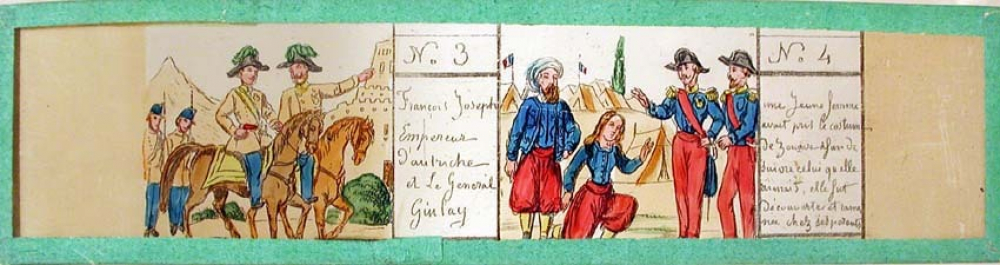 No 3
François Joseph
Empereur
d'autriche
et Le General
Giulay
No 4
une Jeune femme
avait pris le costume
De Zouave afin de
suivre celui qu elle
aimait, elle fut
Découverte et rame
née chez ses parents